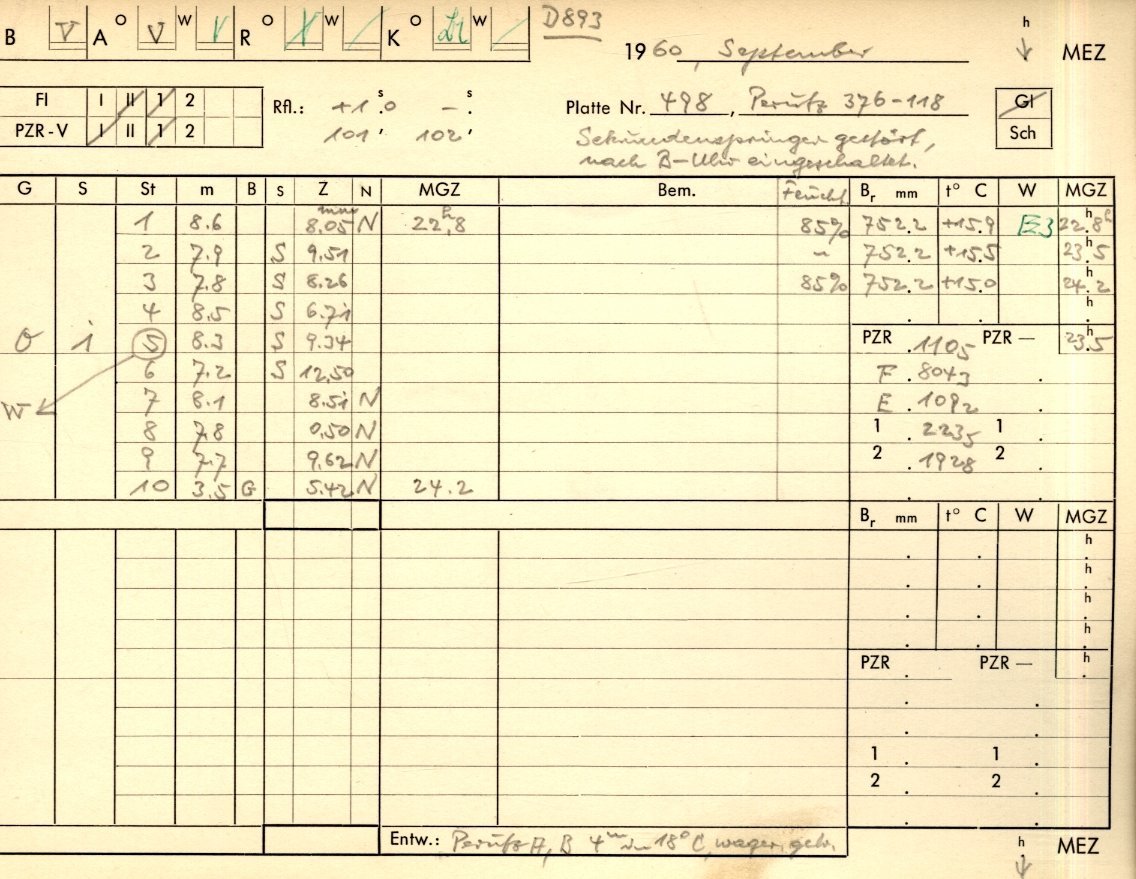 B V A O V W V R O W K O W D893 h
19 60, September MEZ
Fl I II 1 2 Rfl.: +1ˢ.0 –ˢ. Platte Nr. 498, Perutz 376-118 Gl
PZR-V I II 1 2 101' 102' Sekundenspringer gestört, Sch
nach B-Uhr eingeschaltet.
G S St m B S Z N MGZ Bem. Feucht. Bᵣ mm t° C W MGZ
1 8.6 8.05 mm N 22ʰ.8 85% 752.2 +15.9 E3 22ʰ.8
2 7.9 S 9.51 ~ 752.2 +15.5 23ʰ.5
3 7.8 S 8.26 85% 752.2 +15.0 24ʰ.2
4 8.5 S 6.71 h
o i 5 8.3 S 9.34 PZR .1105 PZR — 23ʰ.5
6 7.2 S 12.50 F .8043
W 7 8.1 8.51 N E .1092
8 7.8 0.50 N 1 .2235 1
9 7.7 9.62 N 2 .1928 2
10 3.5 G 5.42 N 24.2
Bᵣ mm t° C W MGZ
h
h
h
h
PZR PZR — h
1 1
2 2
Entw.: Perutz A, B 4ᵐ in 18° C, wager. h MEZ